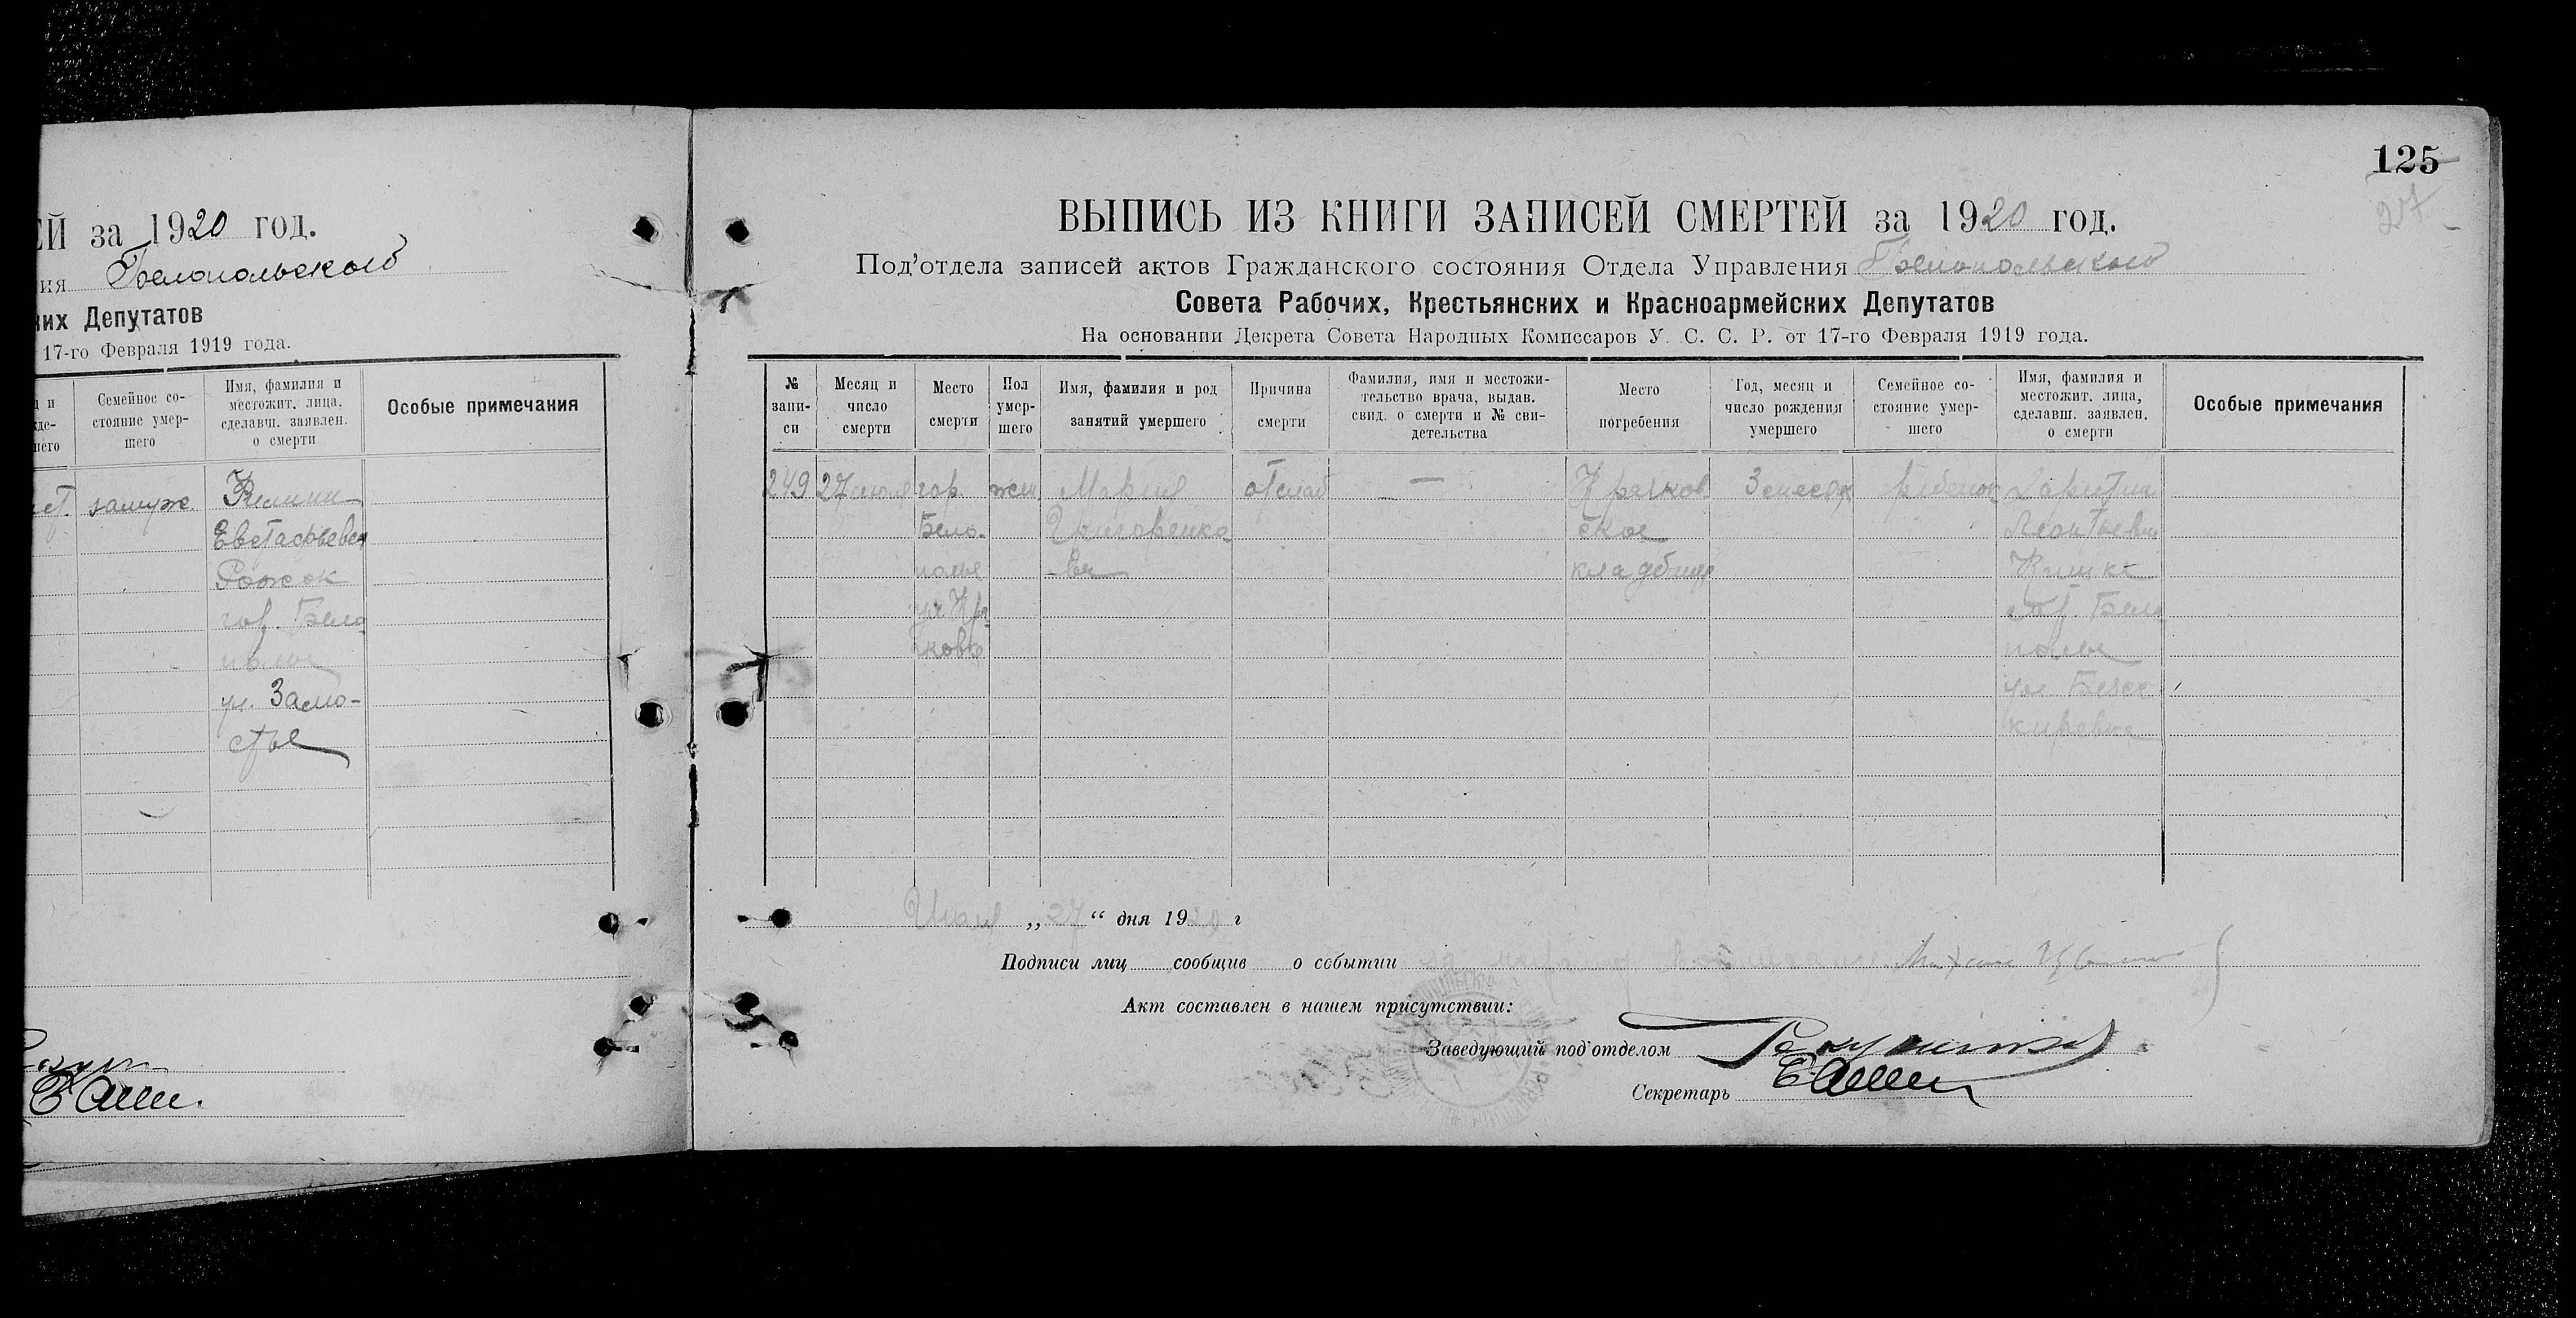 ЕЙ за 1920 год.
ия Белопольского
ких Депутатов
17-го Февраля 1919 года.
Семейное со-
стояние умер-
шего
Имя, фамилия и
местожит. лица,
сделавш. заявлен.
о смерти
Особые примечания
замуж.
Евстафьевск
Рожок
гор. Бело
полье
ул. Замо-
стье
125
27
ВЫПИСЬ ИЗ КНИГИ ЗАПИСЕЙ СМЕРТЕЙ за 1920 год.
Под'отдела записей актов Гражданского состояния Отдела Управления Белопольского
Совета Рабочих, Крестьянских и Красноармейских Депутатов
На основании Декрета Совета Народных Комиссаров У. С. С. Р. от 17-го Февраля 1919 года.
№
запи-
си
Месяц и
число
смерти
Место
смерти
Пол
умер-
шего
Имя, фамилия и род
занятий умершего
Причина
смерти
Фамилия, имя и местожи-
тельство врача, выдав.
свид. о смерти и № сви-
детельства
Место
погребения
Год, месяц и
число рождения
умершего
Семейное со-
стояние умер-
шего
Имя, фамилия и
местожит. лица,
сделавш. заявлен.
о смерти
Особые примечания
249
27 июля
гор.
Бело-
полье
жен.
Мария
Григоренко
-ва
от слаб
—
ское
кладбище
3 месяц
ребенок
Леонтьевна
гор. Бело
полье
ул.
Июля „27“ дня 1920 г
Подписи лиц сообщив о событии
Акт составлен в нашем присутствии:
Заведующий под'отделом
Секретарь